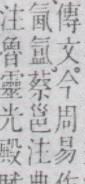 傳文今周易
氤氳蔡邕注典
注魯靈光殿賦